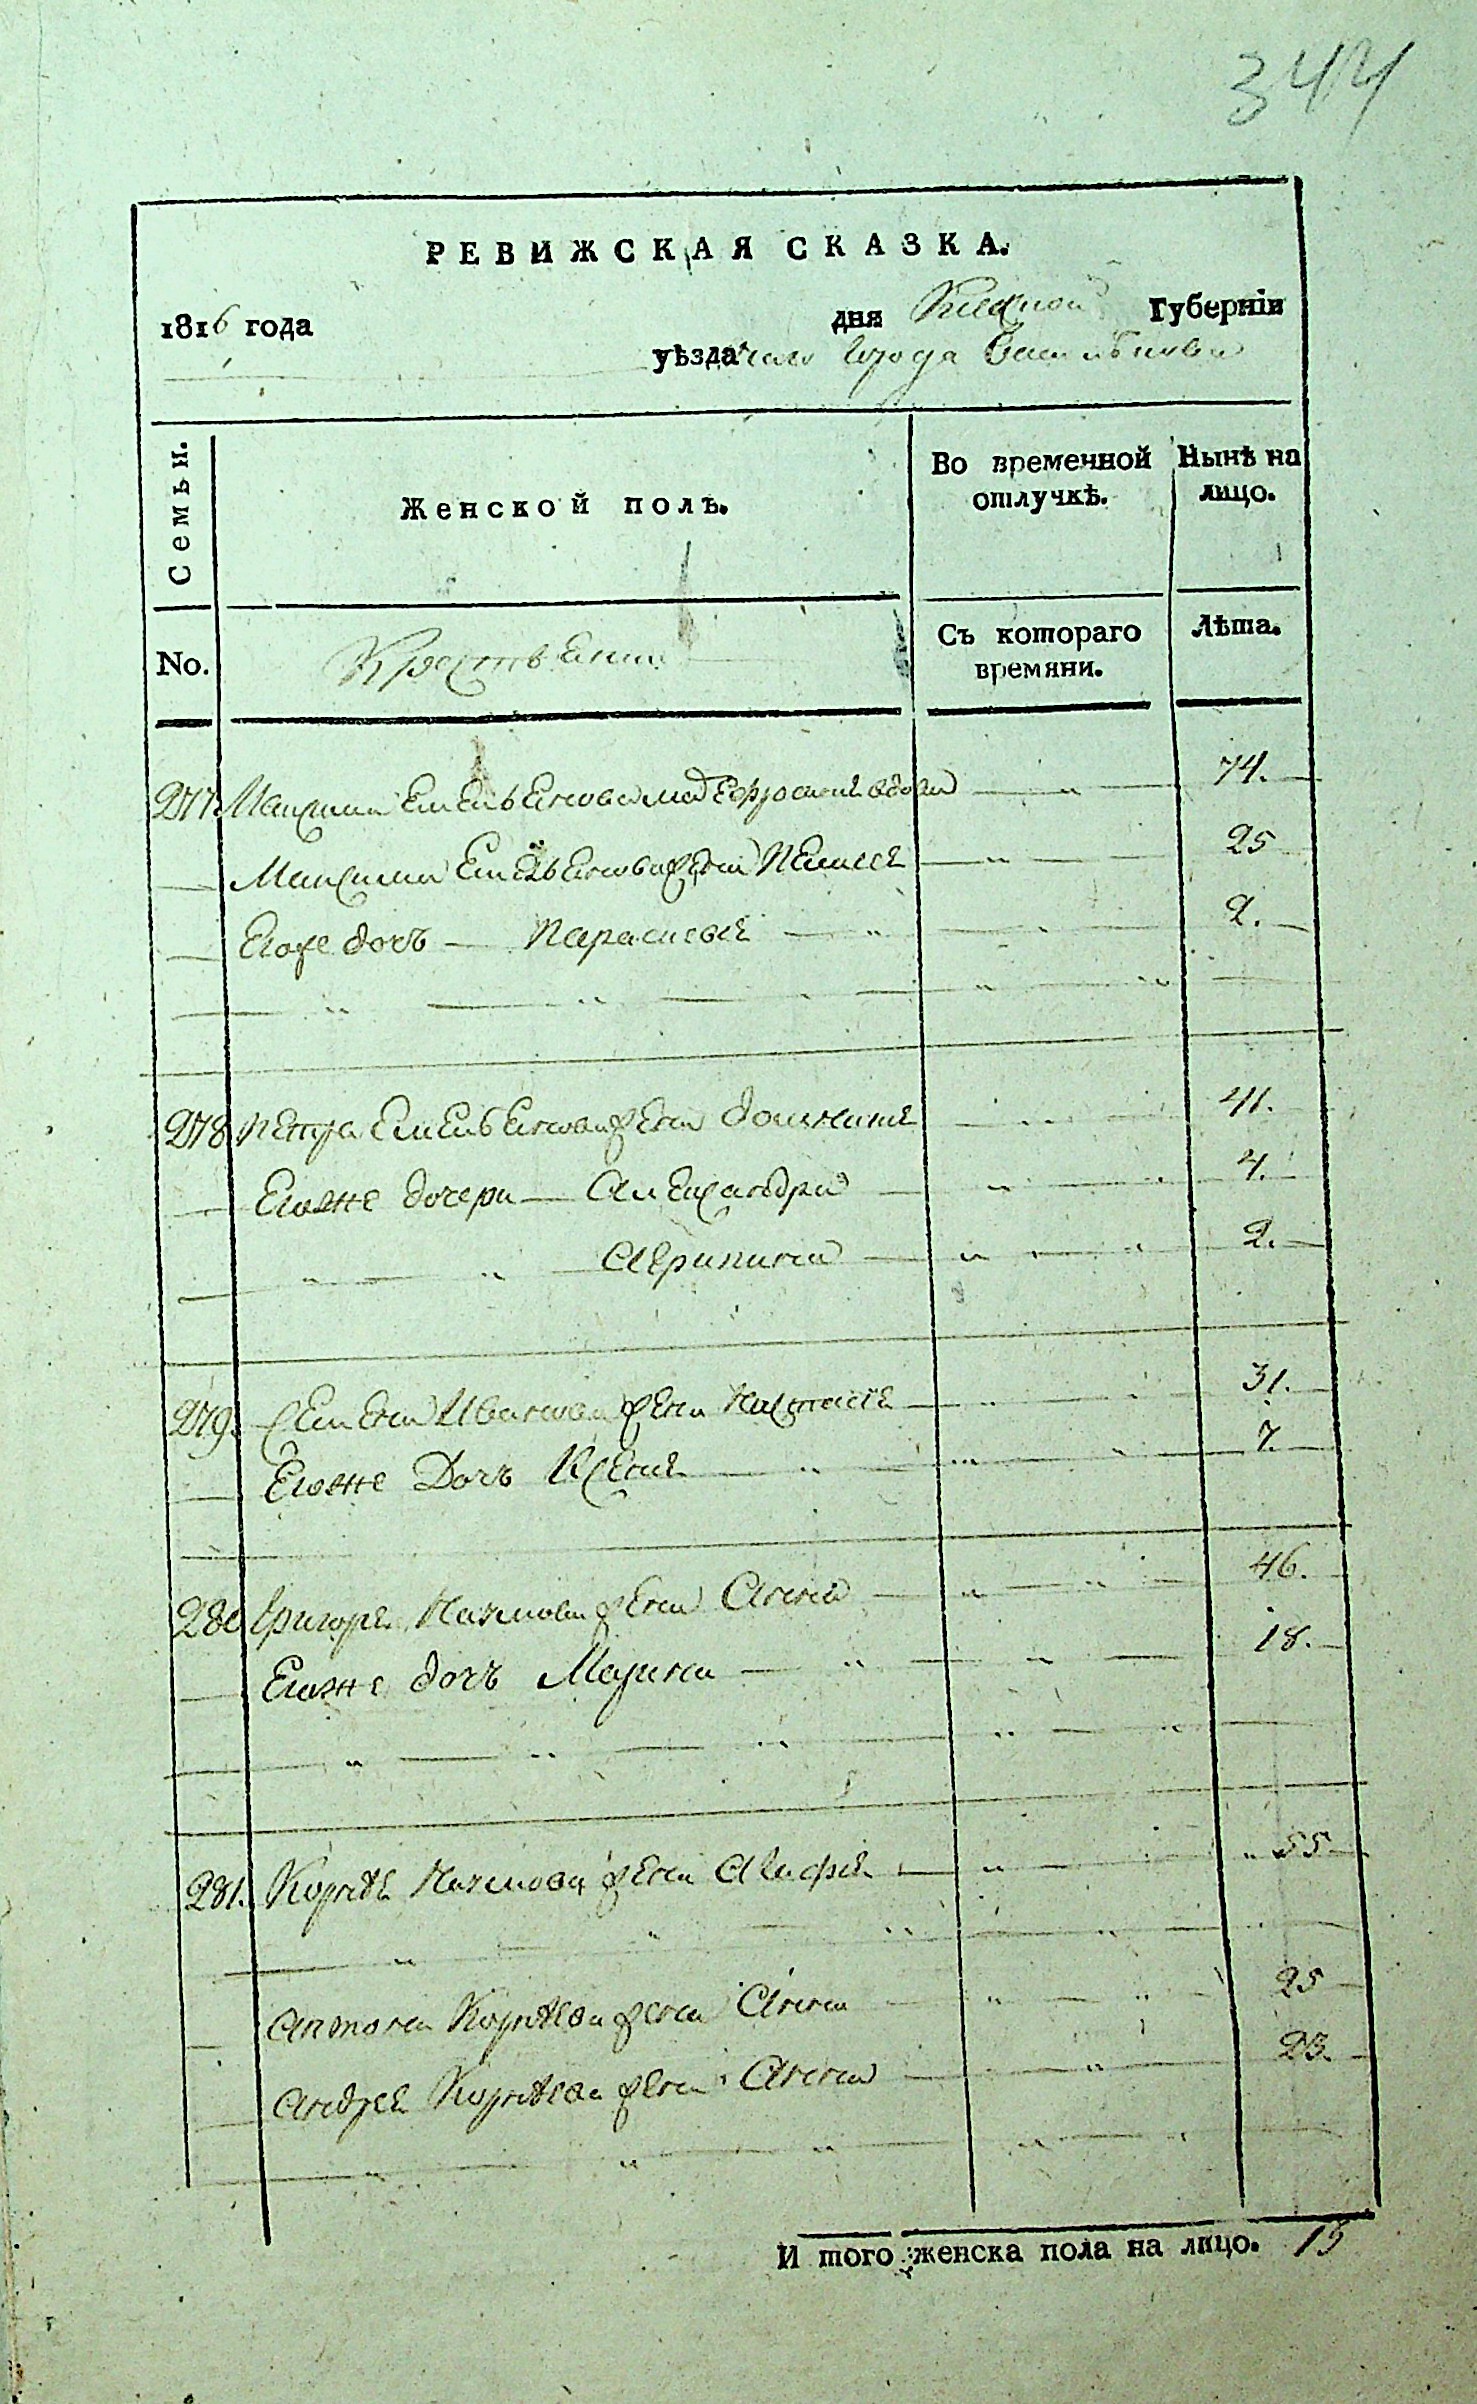 344
РЕВИЖСКАЯ СКАЗКА.
1816 года дня Киевской Губернiи
уѣзда города Василькова
Семьи.
Женской полъ.
Во времечной отлучкѣ.
Нынѣ на лицо.
No.
Крестьяни
Съ котораго времяни.
Лѣта.
277. Максима Емельянова мат Ефросиня вдова 74.
Максима Емельянова жена Пелагея 25
Егоже дочъ Параскевiя 2.
278 Петра Емельянова жена Домникия 41.
Егоже дочери Александра 4.
Агрипина 2.
279. Семена Иванова жена Настасiя 31.
Егоже Дочъ Ксения 7.
280 Григоря Наумова жена Анна 46.
Егоже дочъ Марина 18.
281. Корнея Наумова жена Агафiя 55
Антона Корнѣева жена Анна 25
Андрея Корнѣева жена Анна 23.
И того женска пола на лицо. 13